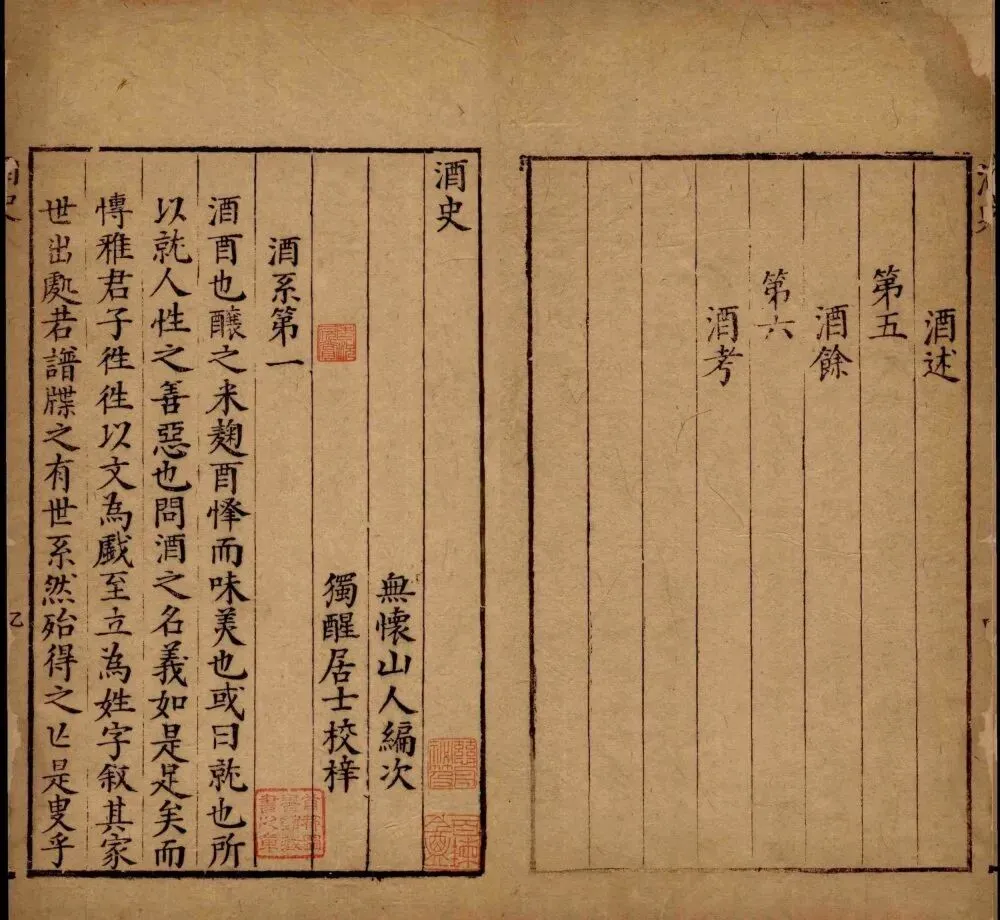 酒述
第五
酒餘
第六
酒考
酒史
無懷山人編次
獨醒居士校梓
酒系第一
酒酉也釀之米麴酉懌而味美也或曰就也所
以就人性之善惡也問酒之名義如是足矣而
愽雅君子徃徃以文為戲至立為姓字叙其家
世出處若譜牒之有世系然殆得之亾是叟乎
首都圖
書館藏
書之章
酒史
乙